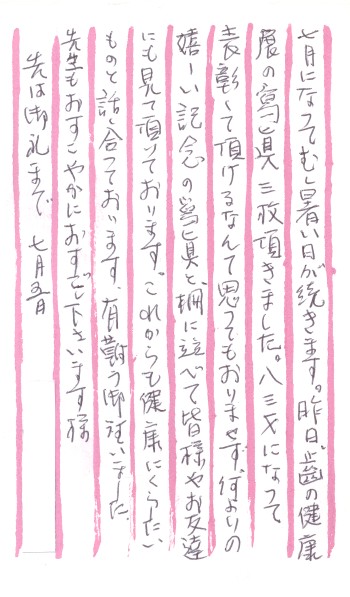 七月になってむし暑い日が続きます。昨日歯の健康
展の写真三枚頂きました。八三才になって
表彰して頂けるなんて思ってもおりませず、何よりの
嬉しい記念の写真と、棚に並べて皆様やお友達
にも見て頂いております。これからも健康にくらしたい
ものと話し合っております、有難う御座いました
先生もおすこやかにおすごし下さいます様
先は御礼まで 七月五日